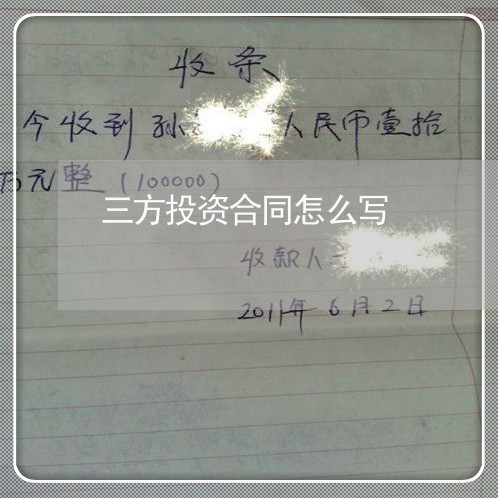 收条
今收到孙 人民币壹拾
万元整（100000）
三方投资合同怎么写
收款人
2011年6月2日